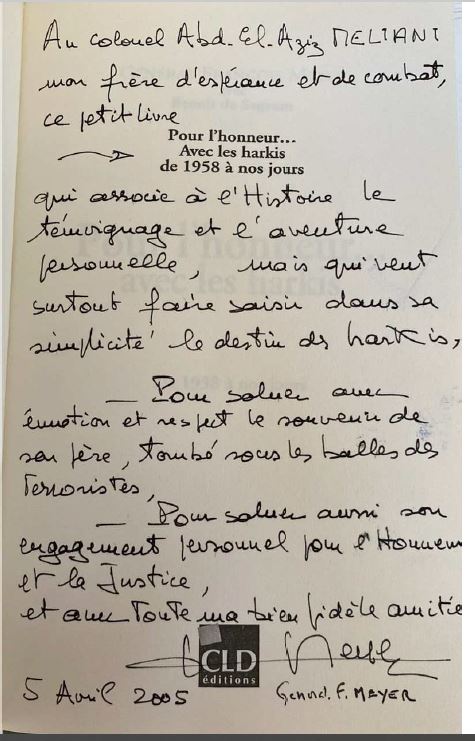 Au colonel Abd-El-Aziz MELIANI
mon frère d'espérance et de combat,
ce petit livre
Pour l'honneur...
Avec les harkis
de 1958 à nos jours
qui associe à l'Histoire le
témoignage et l'aventure
personnelle, mais qui veut
surtout faire saisir dans sa
simplicité le destin des harkis,
— Pour saluer avec
émotion et respect le souvenir de
son père, tombé sous les balles des
Terroristes,
— Pour saluer aussi son
engagement personnel pour l'Honneur
et la Justice,
et avec toute ma bien fidèle amitié
CLD
éditions
5 Avril 2005
Général F. MEYER